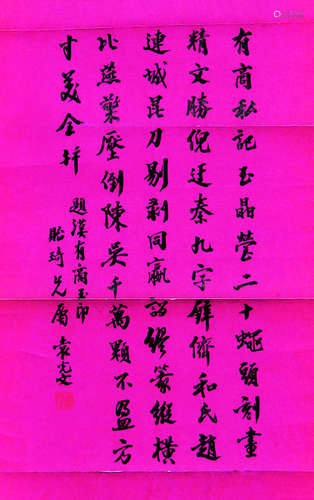 有商私記玉晶瑩二十蠅頭刻畫
精文勝倪迂秦九字鋒儕和氏趙
連城昆刀剔剥同嬴詔繆篆縱橫
比燕檠壓倒陳吳千萬顆不盈方
寸美全并
題漢有商玉印
貽琦兄屬 袁克文